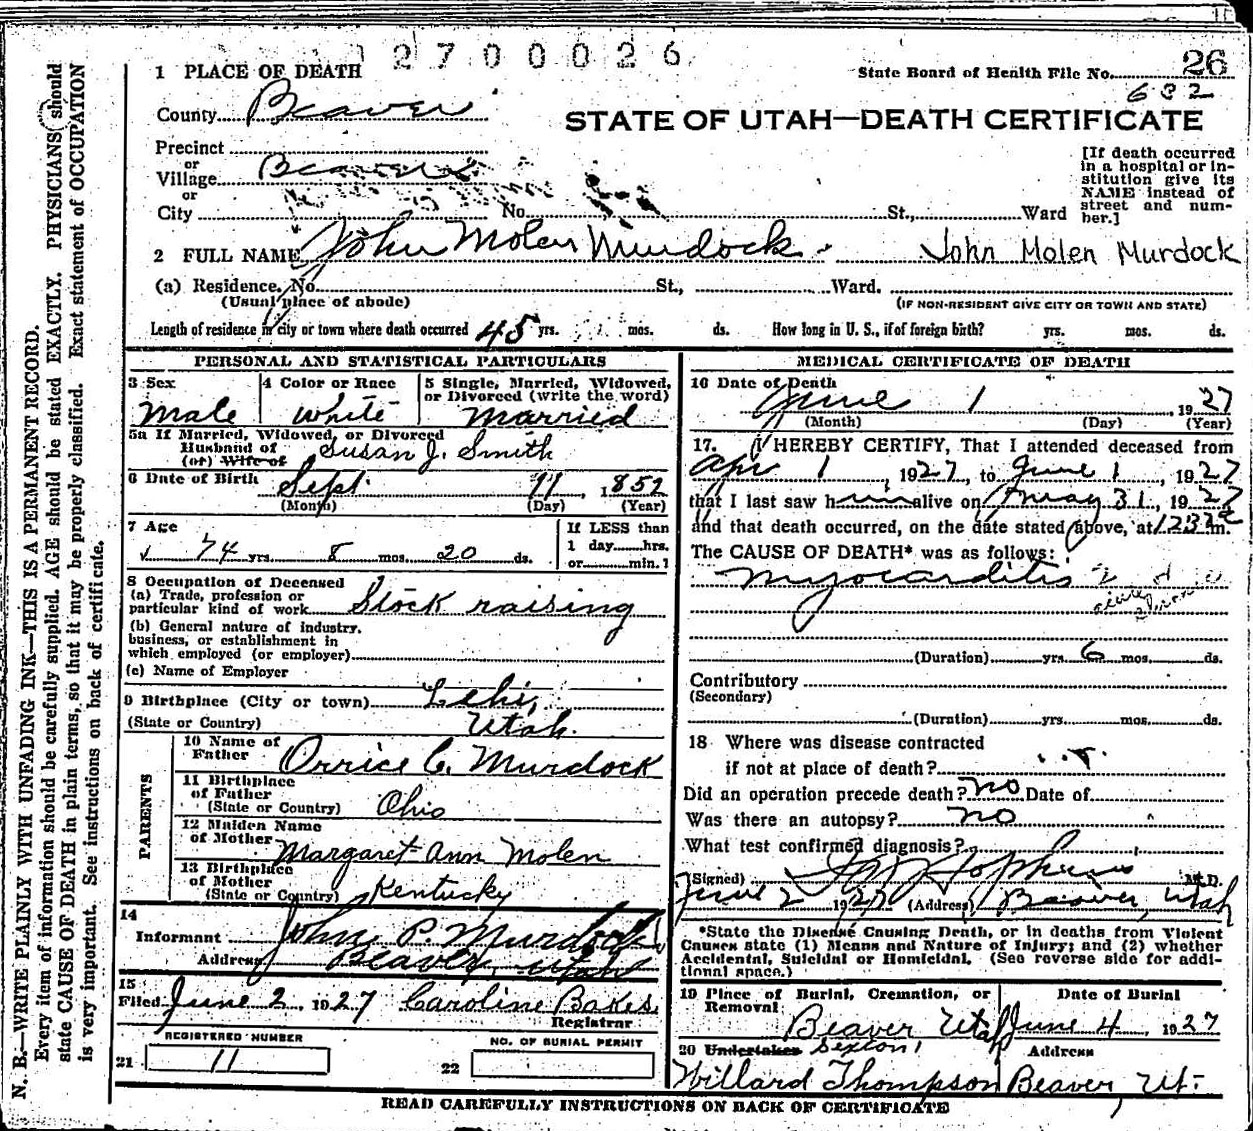 2700026
1 PLACE OF DEATH
State Board of Health File No. 26
632
County Beaver
STATE OF UTAH—DEATH CERTIFICATE
Precinct
or
Village Beaver
or
City No. St., Ward
[If death occurred
in a hospital or in-
stitution give its
NAME instead of
street and num-
ber.]
2 FULL NAME John Molen Murdock John Molen Murdock
(a) Residence. No. St., Ward.
(Usual place of abode) (IF NON-RESIDENT GIVE CITY OR TOWN AND STATE)
Length of residence in city or town where death occurred 45 yrs. mos. ds. How long in U. S., if of foreign birth? yrs. mos. ds.
PERSONAL AND STATISTICAL PARTICULARS
3 Sex
Male
4 Color or Race
White
5 Single, Married, Widowed,
or Divorced (write the word)
Married
5a If Married, Widowed, or Divorced
Husband of
(or) Wife of
Susan J. Smith
6 Date of Birth Sept 11, 1852
(Month) (Day) (Year)
7 Age
74 yrs. 8 mos. 20 ds.
If LESS than
1 day hrs.
or min.?
8 Occupation of Deceased
(a) Trade, profession or
particular kind of work Stock raising
(b) General nature of industry,
business, or establishment in
which employed (or employer)
(c) Name of Employer
9 Birthplace (City or town) Lehi,
(State or Country) Utah.
PARENTS
10 Name of
Father Orrice C. Murdock
11 Birthplace
of Father
(State or Country) Ohio
12 Maiden Name
of Mother Margaret Ann Molen
13 Birthplace
of Mother
(State or Country) Kentucky
14
Informant John P. Murdock
Address Beaver, Utah
15
Filed June 2, 1927 Caroline Bakes
Registrar
REGISTERED NUMBER
21 11
NO. OF BURIAL PERMIT
22
MEDICAL CERTIFICATE OF DEATH
16 Date of Death
June 1, 1927
(Month) (Day) (Year)
17. I HEREBY CERTIFY, That I attended deceased from
Apr 1, 1927, to June 1, 1927
that I last saw him alive on May 31, 1927
and that death occurred, on the date stated above, at m.
The CAUSE OF DEATH* was as follows:
Myocarditis
(Duration) yrs. 6 mos. ds.
Contributory
(Secondary)
(Duration) yrs. mos. ds.
18 Where was disease contracted
if not at place of death?
Did an operation precede death? no Date of
Was there an autopsy? no
What test confirmed diagnosis?
(Signed) M.D.
June 2 1927 (Address) Beaver, Utah
*State the Disease Causing Death, or in deaths from Violent
Causes state (1) Means and Nature of Injury; and (2) whether
Accidental, Suicidal or Homicidal. (See reverse side for addi-
tional space.)
19 Place of Burial, Cremation, or
Removal
Beaver Utah
Date of Burial
June 4, 1927
20 Undertaker Sexton,
Willard Thompson
Address
Beaver, Ut.
READ CAREFULLY INSTRUCTIONS ON BACK OF CERTIFICATE
N. B.—WRITE PLAINLY WITH UNFADING INK—THIS IS A PERMANENT RECORD.
Every item of information should be carefully supplied. AGE should be stated EXACTLY. PHYSICIANS should
state CAUSE OF DEATH in plain terms, so that it may be properly classified. Exact statement of OCCUPATION
is very important. See instructions on back of certificate.